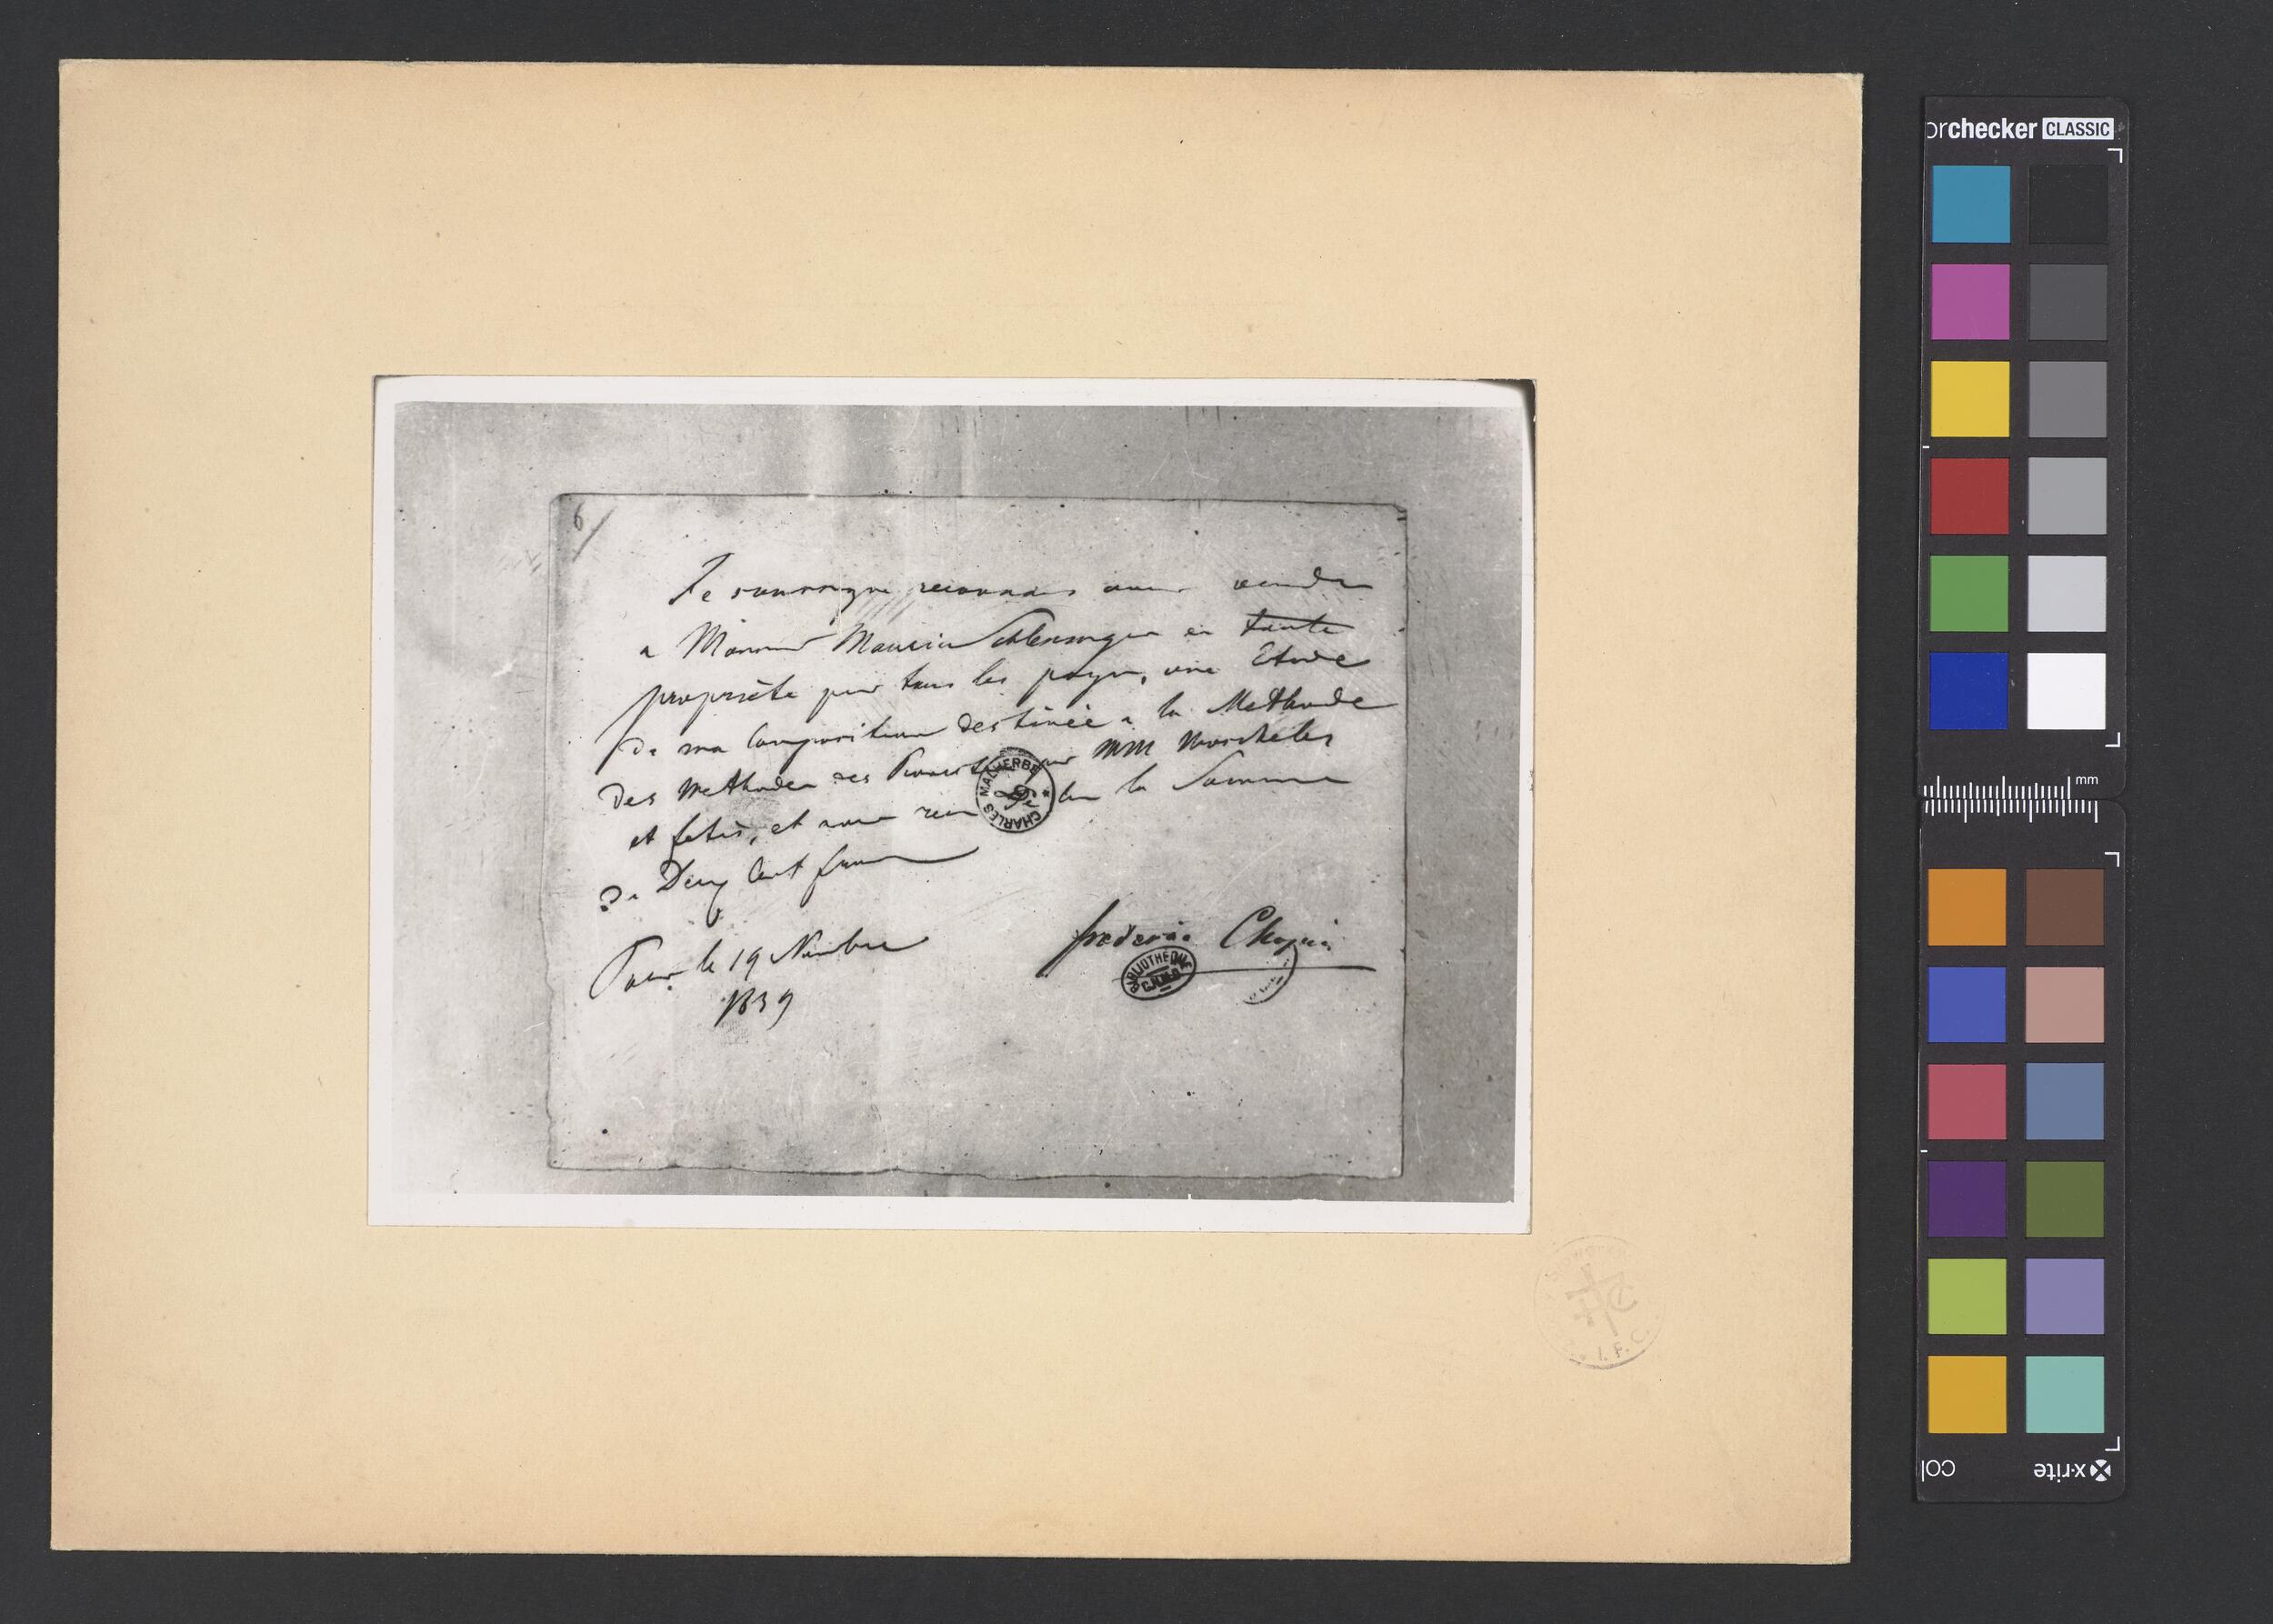 6
Je soussigné reconnais avoir vendu
a Monsieur Maurice Schlesinger en toute
propriété pour tous les pays, une Etude
de ma Composition destinée a la Methode
des Methodes des Pianistes par MM Moscheles
et fetis, et avoir reçu la Somme
de Deux Cent francs
Paris le 19 Novembre
1839
frederic Chopin
CHARLES MALHERBE
BIBLIOTHEQUE
I. F. C.
orchecker CLASSIC
mm
x-rite
col